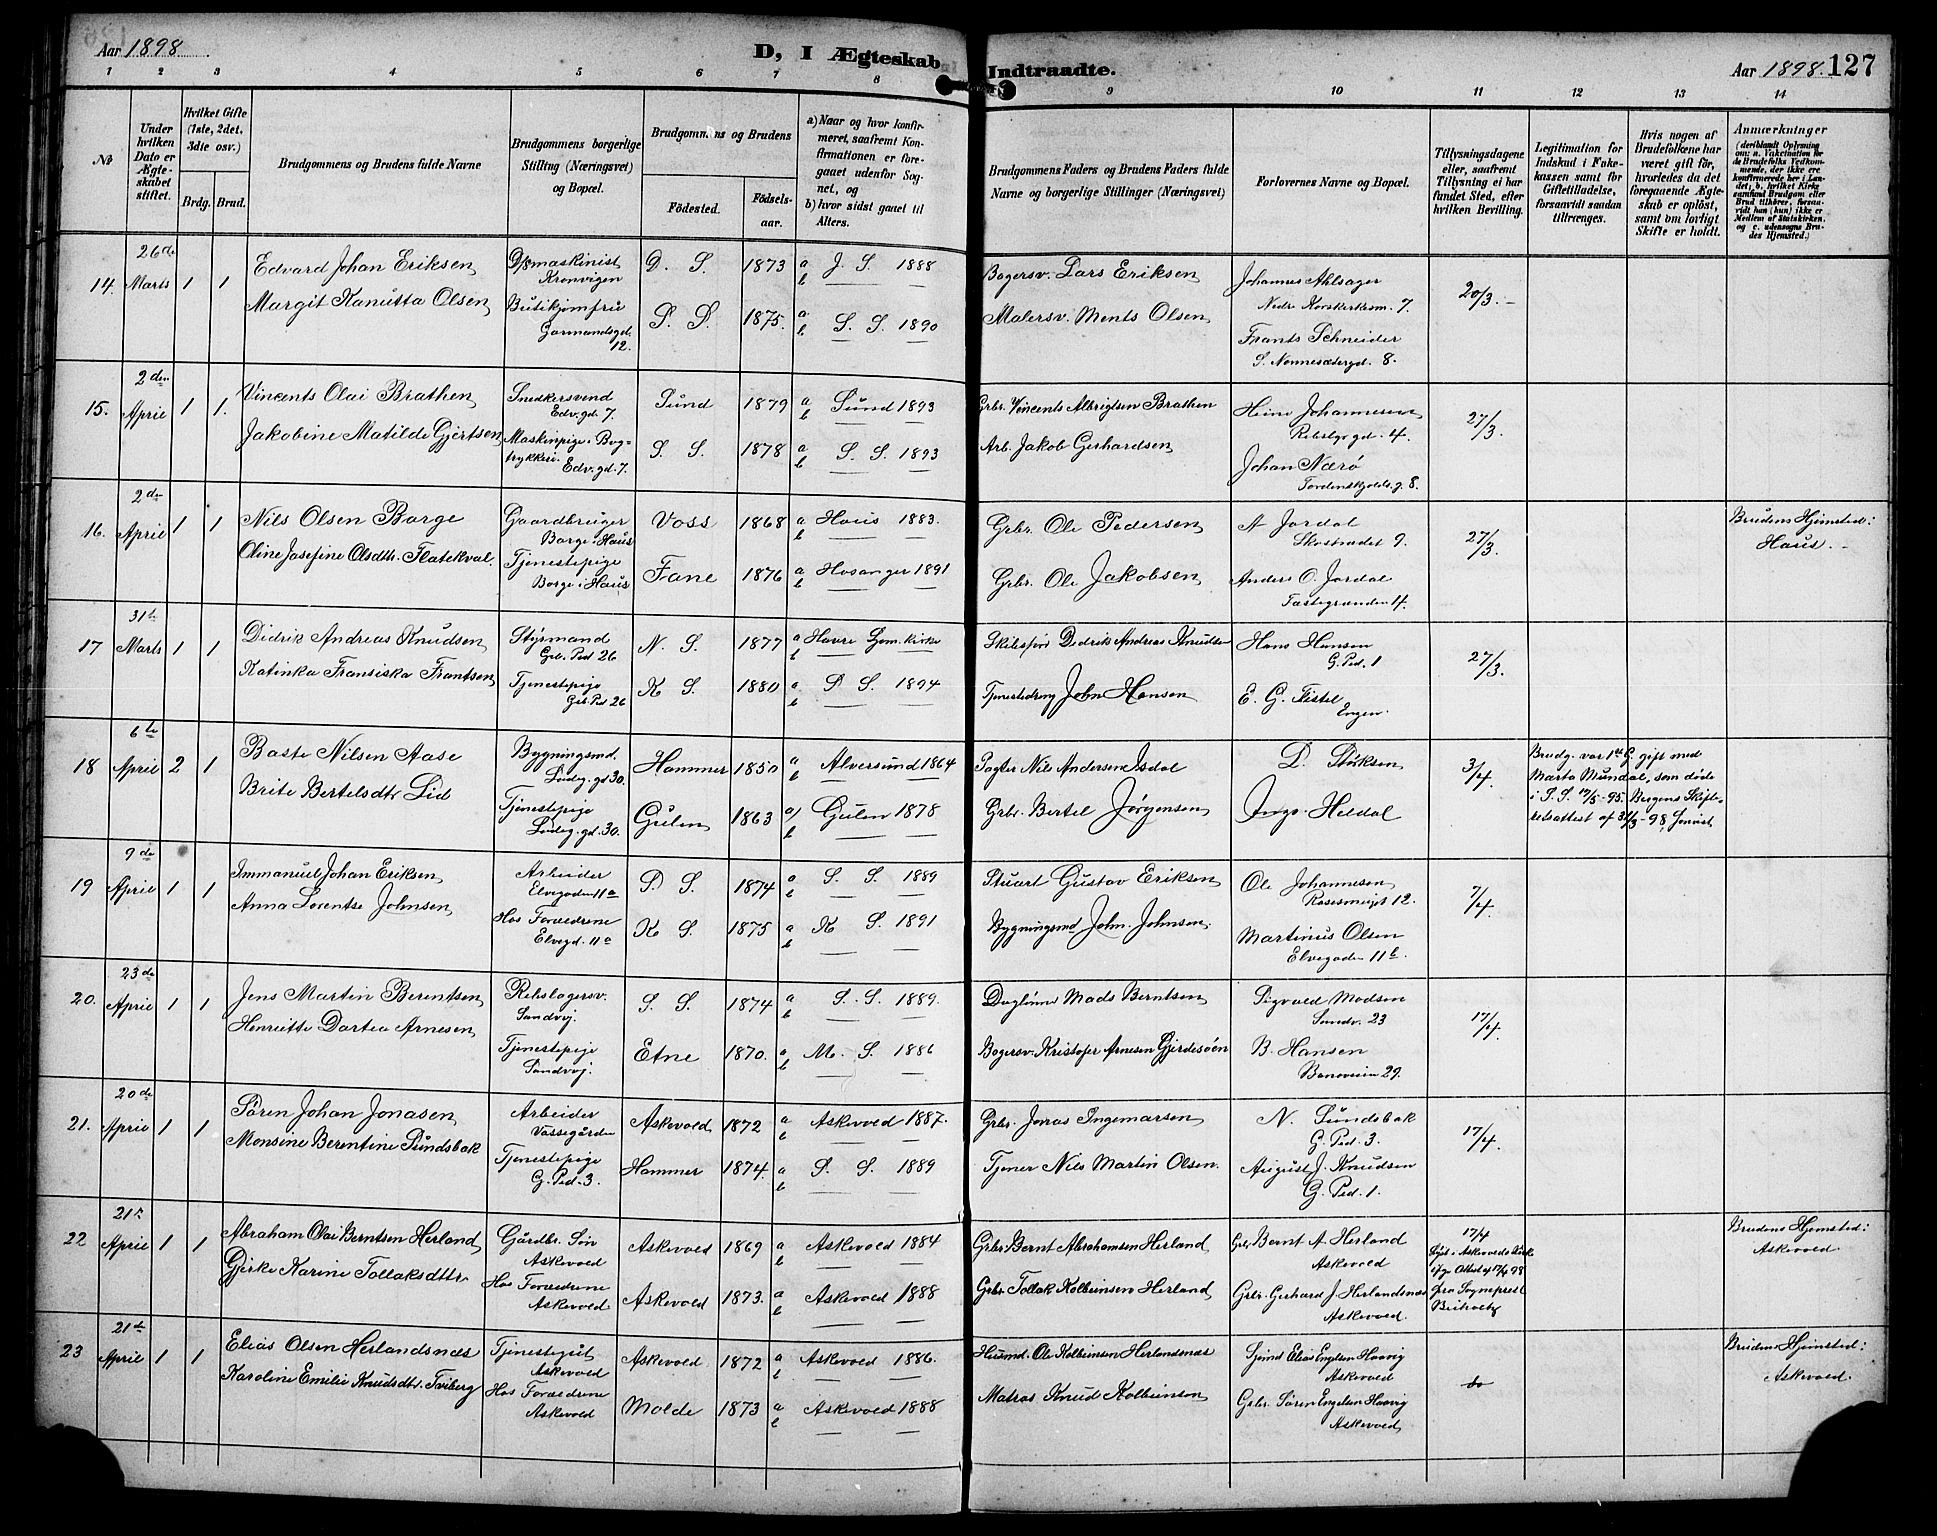 Aar 1898
D, I Ægteskab Indtraadte.
Aar 1898. 127
1 2 3 4 5 6 7 8 9 10 11 12 13 14
No
Under hvilken Dato er Ægteskabet stiftet.
Hvilket Gifte (1ste, 2det, 3die osv.)
Brdg. Brud.
Brudgommens og Brudens fulde Navne
Brudgommens borgerlige Stilling (Næringsvei) og Bopæl.
Brudgommens og Brudens
Fødested.
Fødselsaar.
a) Naar og hvor konfirmeret, saafremt Konfirmationen er foregaaet udenfor Sognet, og
b) hvor sidst gaaet til Alters.
Brudgommens Faders og Brudens Faders fulde Navne og borgerlige Stillinger (Næringsvei)
Forlovernes Navne og Bopæl.
Tillysningsdagene eller, saafremt Tillysning ei har fundet Sted, efter hvilken Bevilling.
Legitimation for Indskud i Enkekassen samt for Giftetilladelse, forsaavidt saadan tiltrænges.
Hvis nogen af Brudefolkene har været gift før, hvorledes da det foregaaende Ægteskab er opløst, samt om lovligt Skifte er holdt.
Anmærkninger
(deriblandt Oplysning om: a. Vakcination for de Brudefolks Vedkommende, der ikke ere konfirmerede her i Landet; b. hvilket Kirkesamfund Brudgom eller Brud tilhører, forsaavidt han (hun) ikke er Medlem af Statskirken, og c. udensogns Brudes Hjemsted.)
14. 26de Marts 1 1
Edvard Johan Eriksen
Margit Kanutta Olsen
D/smaskinist
Kronvigen
Butikjomfru
Garmandsgd.
12.
D. S. 1873 a J. S. 1888
b
P. P. 1875. a S. S. 1890
b
Bøgersv. Lars Eriksen
Malersv. Ments Olsen
Johannes Ahlsager
Nedr. Korskirkesm. 7.
Frants Schneider
S. Nonnesætergd. 8.
20/3. –
15. 2den April 1 1.
Vincents Olai Brathen
Jakobine Matilde Gjertsen
Snedkersvend
Edv. gd. 7.
Maskinpige i Bogtrykkeri
Edv. gd. 7.
Sund 1879 a Sund 1893
b
S. S. 1878 a S. S. 1893
b
Grbr. Vincents Albrigtsen Brathen
Arb. Jakob Gerhardsen
Heine Johannesen
Rebslgr gd. 4.
Johan Nærø
Tordenskjolds.g. 8.
27/3.
16. 2de April 1 1
Nils Olsen Borge
Oline Josefine Olsdtr. Flatekval.
Gaardbruger
Borge i Haus
Tjenestepige
Borge i Haus
Voss 1868 a Haus 1883.
b
Fane 1876 a Hosanger 1891
b
Grbr. Ole Pedersen
Grbr. Ole Jakobsen
A Jordal
Skostrædet 9.
Anders O. Jordal
Tastegranden 4.
27/3.
Brudens Hjemsted:
Haus. –
17 31te Marts 1 1
Didrik Andreas Knudsen
Katinka Fransiska Frantsen
Styrmand
Grb. Ped 26
Tjenestepige
Grb. Ped 26
N. S. 1877 a Havre Søm. kirke
b
K S. 1880 a D S. 1894
b
Skibsfør Didrik Andreas Knudsen
Tjenestedreng John Hansen
Hans Hansen
G. Ped. 1
E. G. Fistel
Engen.
27/3.
18 6te April 2 1
Baste Nilsen Aase
Brite Bertelsdtr Lid
Bygningsmd.
Ludeg. gd 30.
Tjenestepige
Ludeg. gd. 30.
Hammer 1850 a Alversund 1864
b
Gulen 1863 a/ Gulen 1878
b
Pagter Nils Andersen Isdal
Grbr. Bertel Jørgensen
D. Støksen
Inge Heldal
3/4.
Brudg. var 1ste G. gift med
Marta Mundal, som døde
i S. S. 19/5 – 95. Bergens Skifteretsattest af 31/3 – 98 forevist
19 9de April 1 1
Immanuel Johan Eriksen
Anna Lorentse Johnsen
Arbeider
Elvegaden 11 a
Hos Forældrene
Elvegd. 11 a
D. S. 1874 a S. S. 1889
b
K S. 1875 a K S. 1891
b
Stuart Gustav Eriksen
Bygningsmd John. Johnsen.
Ole Johannesen
Rosesmuget 12.
Martinus Olsen
Elvegaden 11 b.
7/4.
20. 23de April 1 1
Jens Martin Berentsen
Henriette Dortea Arnesen
Rebslagersv.
Sandvig.
Tjenestepige
Sandvig.
S. S. 1874 a S. S. 1889.
b
Etne 1870. a M. S. 1886
b
Dagløner Mads Berntsen
Bøgersv. Kristofer Arnesen Gjerdesøen
Sigvald Madsen
Sandv. 23
B. Hansen
Baneveien 29.
17/4.
21. 20de April 1 1
Søren Johan Jonasen
Monsine Berentine Sundsbak
Arbeider
Vassegården
Tjenestepige
G. Ped. 3.
Askevold 1872 a Askevold 1887.
b
Hammer 1874. a S. S. 1889
b
Grbr. Jonas Ingemarsen
Tjener Nils Martin Olsen.
N. Sundsbak
G. Ped. 3.
August J. Knudsen
G. Ped. 1.
17/4.
22 21de April 1 1
Abraham Olai Berntsen Herland
Gjerke Karine Tollaksdttr.
Gårdbr. Søn
Askevold
Hos Forældrene
Askevold
Askevold 1869 a Askevold 1884
b
Askevold 1873. a Askevold 1888
b
Grbr. Bernt Abrahamsen Herland
Grbr. Tollak Kolbeinsen Herland
Grbr. Bernt A. Herland
Askevold
Grbr. Gerhard J. Herlandsnæs
Askevold.
17/4
Lyst i Askevolds Kirke
ifg. Attest af 17/4 98
fra Sognepræst
Brudens Hjemsted:
Askevold
23 21de April 1 1
Elias Olsen Herlandsnæs
Karoline Emilie Knudsdtr. Tviberg
Tjenestegut
Askevold
Hos Forældrene
Askevold
Askevold 1872 a Askevold 1886.
b
Molde 1873 a Askevold 1888
b
Husmd. Ole Kolbeinsen Herlandsnæs
Matros Knud Kolbeinsen
Sjømd Elias Engelsen Haavig
Askevold
Grbr. Søren Engelsen Haavig
Askevold
do
Brudens Hjemsted:
Askevold.